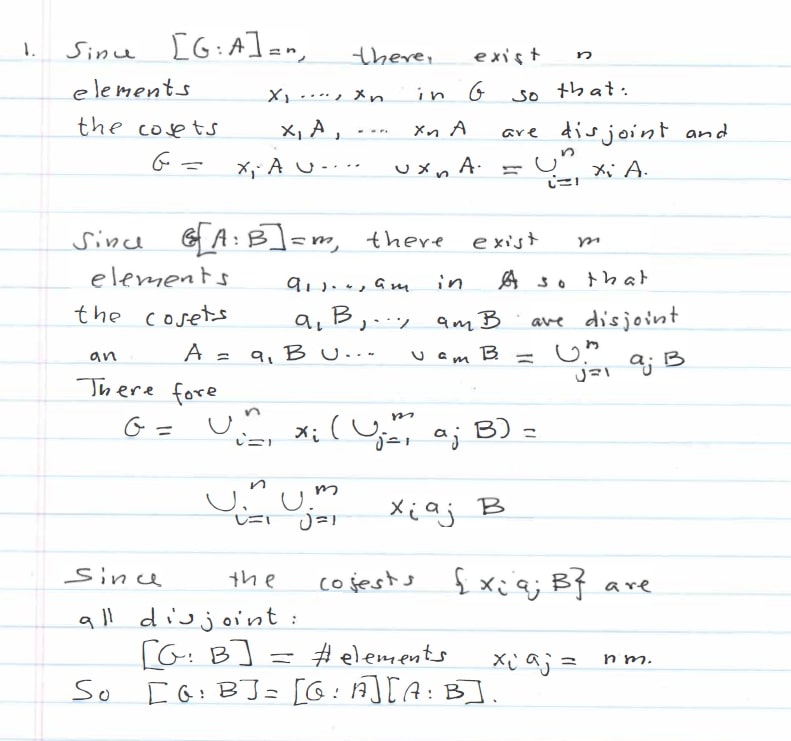 1. Since [G:A]=n, there, exist n
elements x₁ ...., xn in G so that:
the cosets x₁A, ... xn A are disjoint and
G = xᵢ A ∪ .... ∪ xn A. = ∪ⁿᵢ₌₁ xᵢ A.
Since [A:B]=m, there exist m
elements a₁,..., am in A so that
the cosets a₁B,..., amB are disjoint
an A = a₁ B ∪ ... ∪ am B = ∪ᵐⱼ₌₁ aⱼ B
There fore
G = ∪ⁿᵢ₌₁ xᵢ (∪ᵐⱼ₌₁ aⱼ B) =
∪ⁿᵢ₌₁ ∪ᵐⱼ₌₁ xᵢaⱼ B
Since the cosests {xᵢaⱼB} are
all disjoint:
[G:B] = # elements xᵢaⱼ = nm.
So [G:B]=[G:A][A:B].